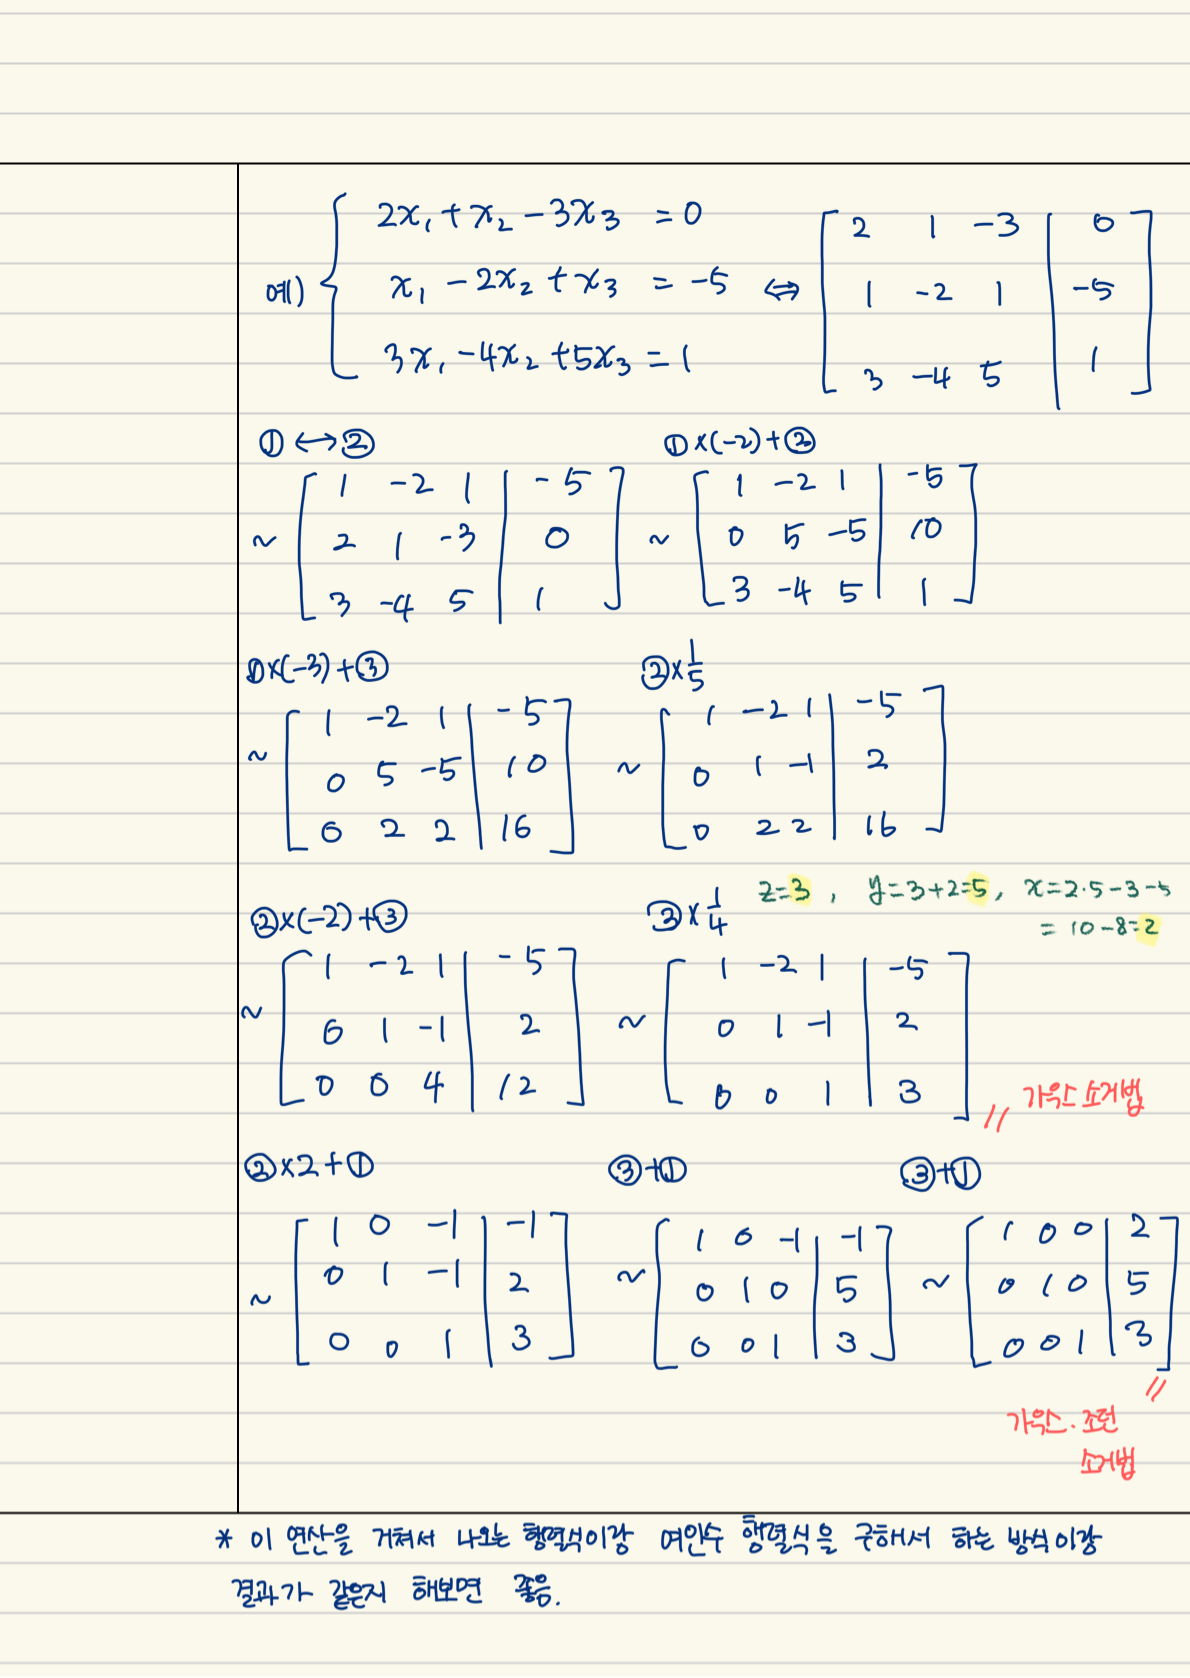 예) 2x₁+x₂-3x₃ = 0
x₁-2x₂+x₃ = -5
3x₁-4x₂+5x₃ = 1
⇔
2 1 -3 | 0
1 -2 1 | -5
3 -4 5 | 1
① ↔ ②
~
1 -2 1 | -5
2 1 -3 | 0
3 -4 5 | 1
①×(-2)+②
~
1 -2 1 | -5
0 5 -5 | 10
3 -4 5 | 1
①×(-3)+③
~
1 -2 1 | -5
0 5 -5 | 10
0 2 2 | 16
②×1/5
~
1 -2 1 | -5
0 1 -1 | 2
0 2 2 | 16
②×(-2)+③
~
1 -2 1 | -5
0 1 -1 | 2
0 0 4 | 12
③×1/4
z=3, y=3+2=5, x=2·5-3-5
= 10-8=2
~
1 -2 1 | -5
0 1 -1 | 2
0 0 1 | 3
// 가우스 소거법
②×2+①
~
1 0 -1 | -1
0 1 -1 | 2
0 0 1 | 3
③+①
~
1 0 -1 | -1
0 1 0 | 5
0 0 1 | 3
③+①
~
1 0 0 | 2
0 1 0 | 5
0 0 1 | 3
//
가우스·조던
소거법
* 이 연산을 거쳐서 나오는 행렬식이랑 여인수 행렬식을 구해서 하는 방식이랑
결과가 같은지 해보면 좋음.